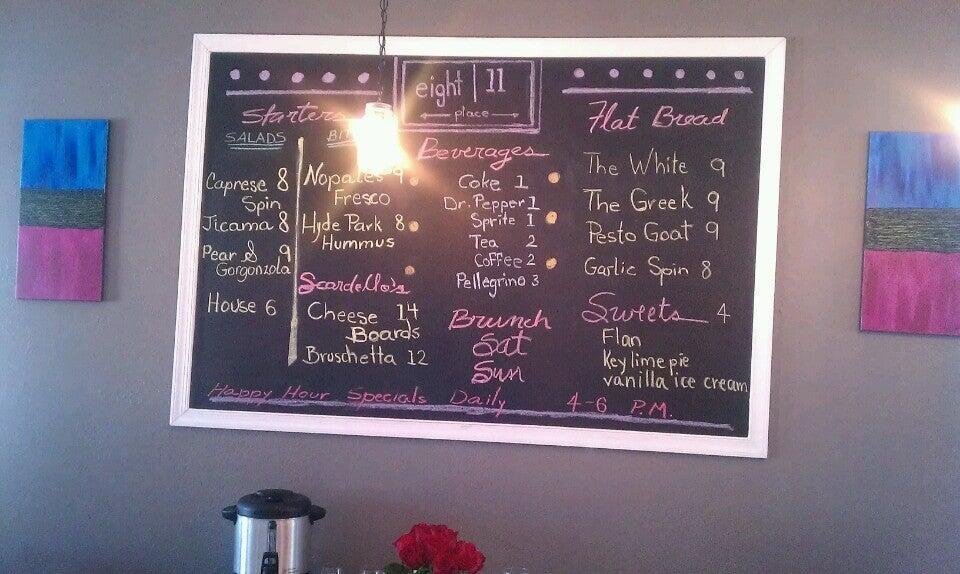 eight | 11
place
Starters
SALADS
Caprese 8
Spin
Jicama 8
Pear & 9
Gorgonzola
House 6
Nopales 9
Fresco
Hyde Park 8
Hummus
Scardello's
Cheese 14
Boards
Bruschetta 12
Beverages
Coke 1
Dr. Pepper 1
Sprite 1
Tea 2
Coffee 2
Pellegrino 3
Brunch
Sat
Sun
Flat Bread
The White 9
The Greek 9
Pesto Goat 9
Garlic Spin 8
Sweets 4
Flan
Key lime pie
vanilla ice cream
Happy Hour Specials Daily 4-6 P.M.